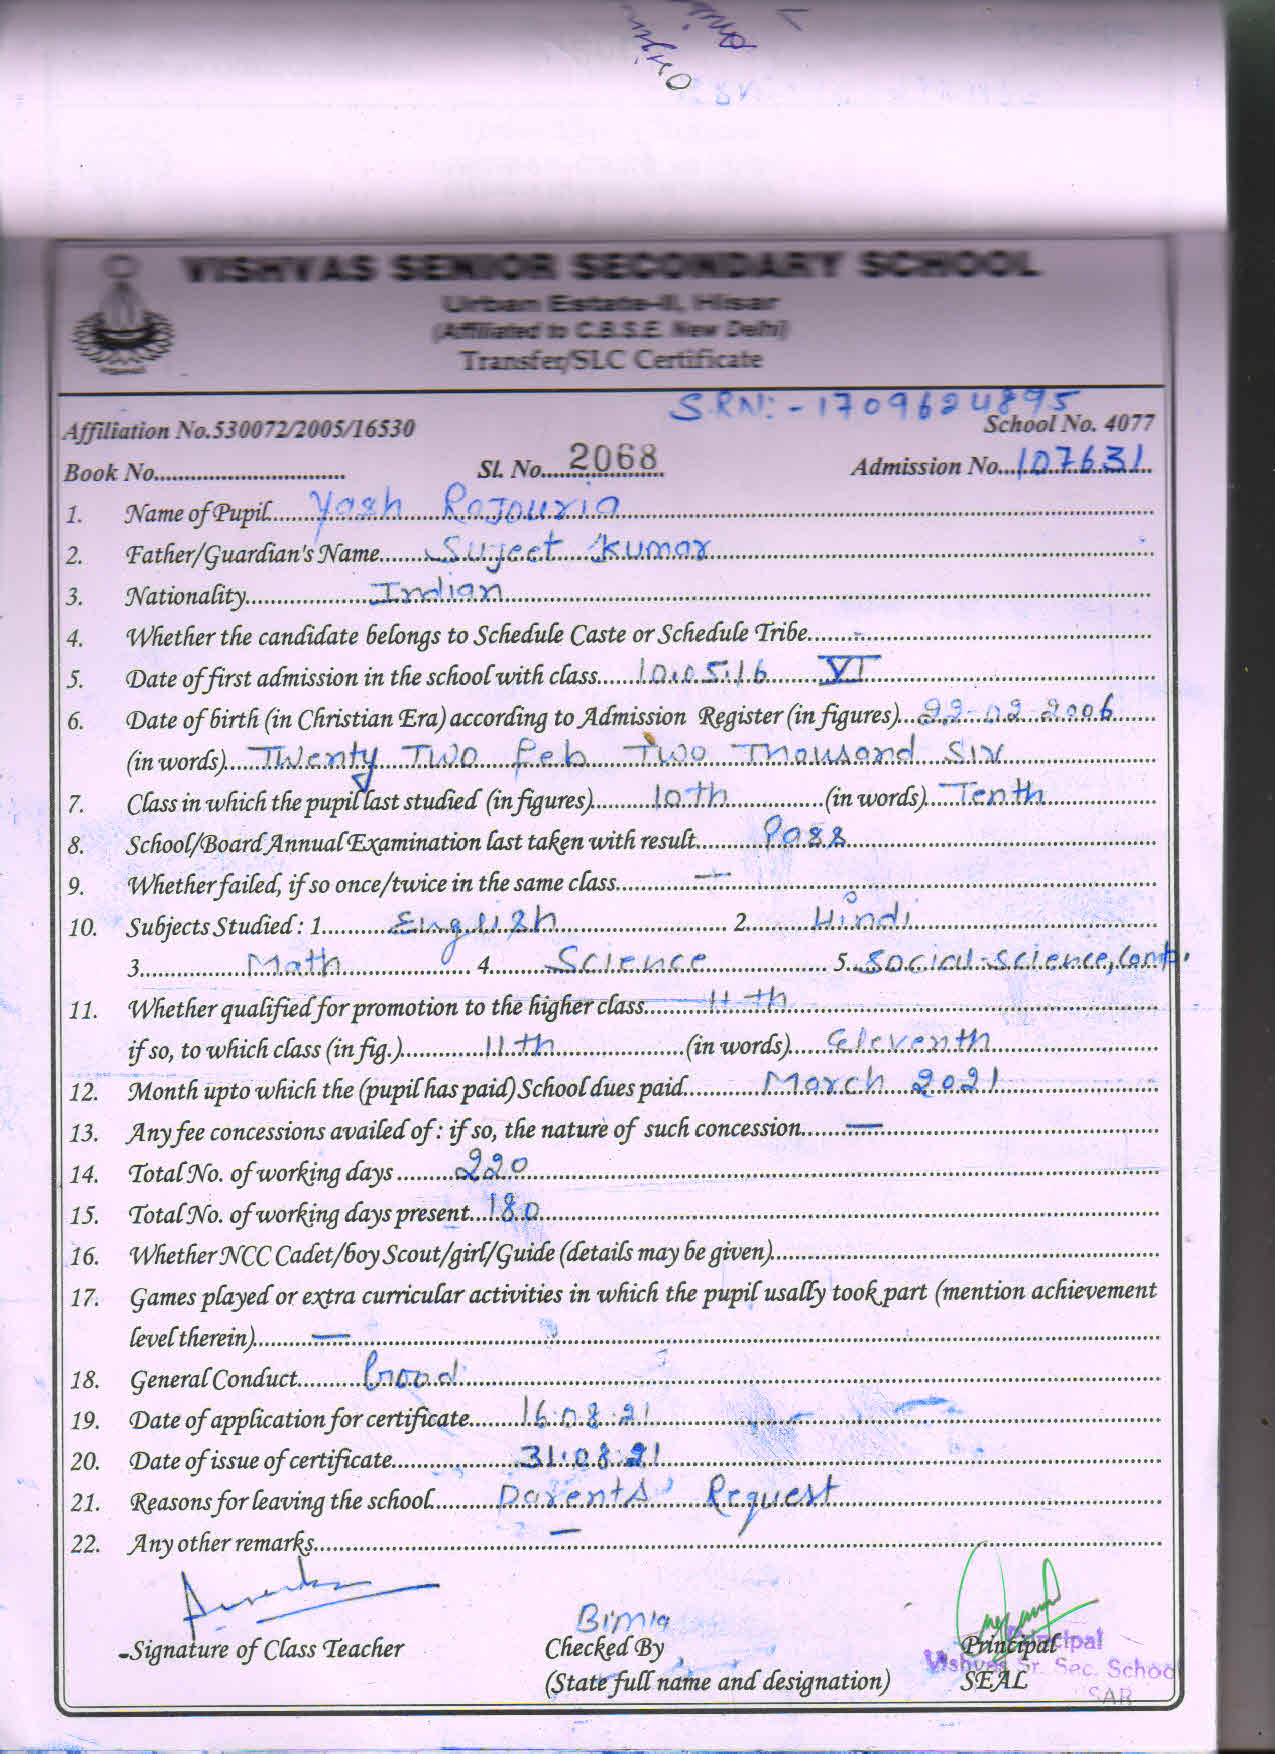 VISHVAS SENIOR SECONDARY SCHOOL
Urban Estate-II, Hisar
(Affiliated to C.B.S.E. New Delhi)
Transfer/SLC Certificate
SRN:-1709624895
Affiliation No.530072/2005/16530 School No. 4077
Book No. Sl. No. 2068 Admission No. 107631
1. Name of Pupil Yash Rajouria
2. Father/Guardian's Name Sujeet Kumar
3. Nationality Indian
4. Whether the candidate belongs to Schedule Caste or Schedule Tribe -
5. Date of first admission in the school with class 10.05.16 VI
6. Date of birth (in Christian Era) according to Admission Register (in figures) 22-02-2006
(in words) Twenty Two Feb Two Thousand Six
7. Class in which the pupil last studied (in figures) 10th (in words) Tenth
8. School/Board Annual Examination last taken with result Pass
9. Whether failed, if so once/twice in the same class —
10. Subjects Studied : 1. English 2. Hindi
3. Math 4. Science 5. Social-Science, Comp.
11. Whether qualified for promotion to the higher class 11th
if so, to which class (in fig.) 11th (in words) Eleventh
12. Month upto which the (pupil has paid) School dues paid March 2021
13. Any fee concessions availed of : if so, the nature of such concession —
14. Total No. of working days 220
15. Total No. of working days present 180
16. Whether NCC Cadet/boy Scout/girl/Guide (details may be given)
17. Games played or extra curricular activities in which the pupil usally took part (mention achievement
level therein) —
18. General Conduct Good
19. Date of application for certificate 16.08.21
20. Date of issue of certificate 31.08.21
21. Reasons for leaving the school Parents' Request
22. Any other remarks —
Bimla
Signature of Class Teacher Checked By Principal
Principal
(State full name and designation) SEAL
Vishvas Sr. Sec. School